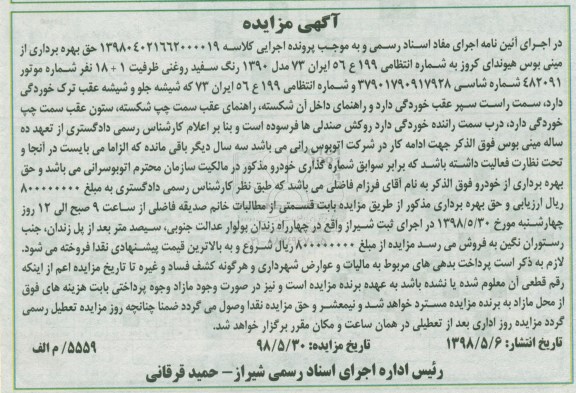 آگهی مزایده
در اجرای آئین نامه اجرای مفاد اسناد رسمی و به موجب پرونده اجرایی کلاسه ۱۳۹۸۰۴۰۲۱۶۶۲۰۰۰۰۱۹ حق بهره برداری از
مینی بوس هیوندای کروز به شماره انتظامی ۱۹۹ ع ۵۶ ایران ۷۳ مدل ۱۳۹۰ رنگ سفید روغنی ظرفیت ۱ + ۱۸ نفر شماره موتور
۴۸۲۰۹۱ شماره شاسی ۳۷۹۰۱۷۹۰۹۱۷۹۲۸ و شماره انتظامی ۱۹۹ ع ۵۶ ایران ۷۳ که شیشه جلو و شیشه عقب ترک خوردگی
دارد، سمت راست سپر عقب خوردگی دارد و راهنمای داخل آن شکسته، راهنمای عقب سمت چپ شکسته، ستون عقب سمت چپ
خوردگی دارد، درب سمت راننده خوردگی دارد روکش صندلی ها فرسوده است و بنا بر اعلام کارشناس رسمی دادگستری از تعهد ده
ساله مینی بوس فوق الذکر جهت ادامه کار در شرکت اتوبوس رانی می باشد سه سال دیگر باقی مانده که الزاما می بایست در آنجا و
تحت نظارت فعالیت داشته باشد که برابر سوابق شماره گذاری خودرو مذکور در مالکیت سازمان محترم اتوبوسرانی می باشد و حق
بهره برداری از خودرو فوق الذکر به نام آقای فرزام فاضلی می باشد که طبق نظر کارشناس رسمی دادگستری به مبلغ ۸۰۰۰۰۰۰۰۰
ریال ارزیابی و حق بهره برداری مذکور از طریق مزایده بابت قسمتی از مطالبات خانم صدیقه فاضلی از ساعت ۹ صبح الی ۱۲ روز
چهارشنبه مورخ ۱۳۹۸/۵/۳۰ در اجرای ثبت شیراز واقع در چهارراه زندان بولوار عدالت جنوبی، سیصد متر بعد از پل زندان، جنب
رستوران نگین به فروش می رسد مزایده از مبلغ ۸۰۰۰۰۰۰۰۰ ریال شروع و به بالاترین قیمت پیشنهادی نقدا فروخته می شود.
لازم به ذکر است پرداخت بدهی های مربوط به مالیات و عوارض شهرداری و هرگونه کشف فساد و غیره تا تاریخ مزایده اعم از اینکه
رقم قطعی آن معلوم شده یا نشده باشد به عهده برنده مزایده است و نیز در صورت وجود مازاد وجوه پرداختی بابت هزینه های فوق
از محل مازاد به برنده مزایده مسترد خواهد شد و نیمعشر و حق مزایده نقدا وصول می گردد ضمنا چنانچه روز مزایده تعطیل رسمی
گردد مزایده روز اداری بعد از تعطیلی در همان ساعت و مکان مقرر برگزار خواهد شد.
تاریخ انتشار: ۱۳۹۸/۵/۶ تاریخ مزایده: ۹۸/۵/۳۰ ۵۵۵۹/ م الف
رئیس اداره اجرای اسناد رسمی شیراز – حمید قرقانی